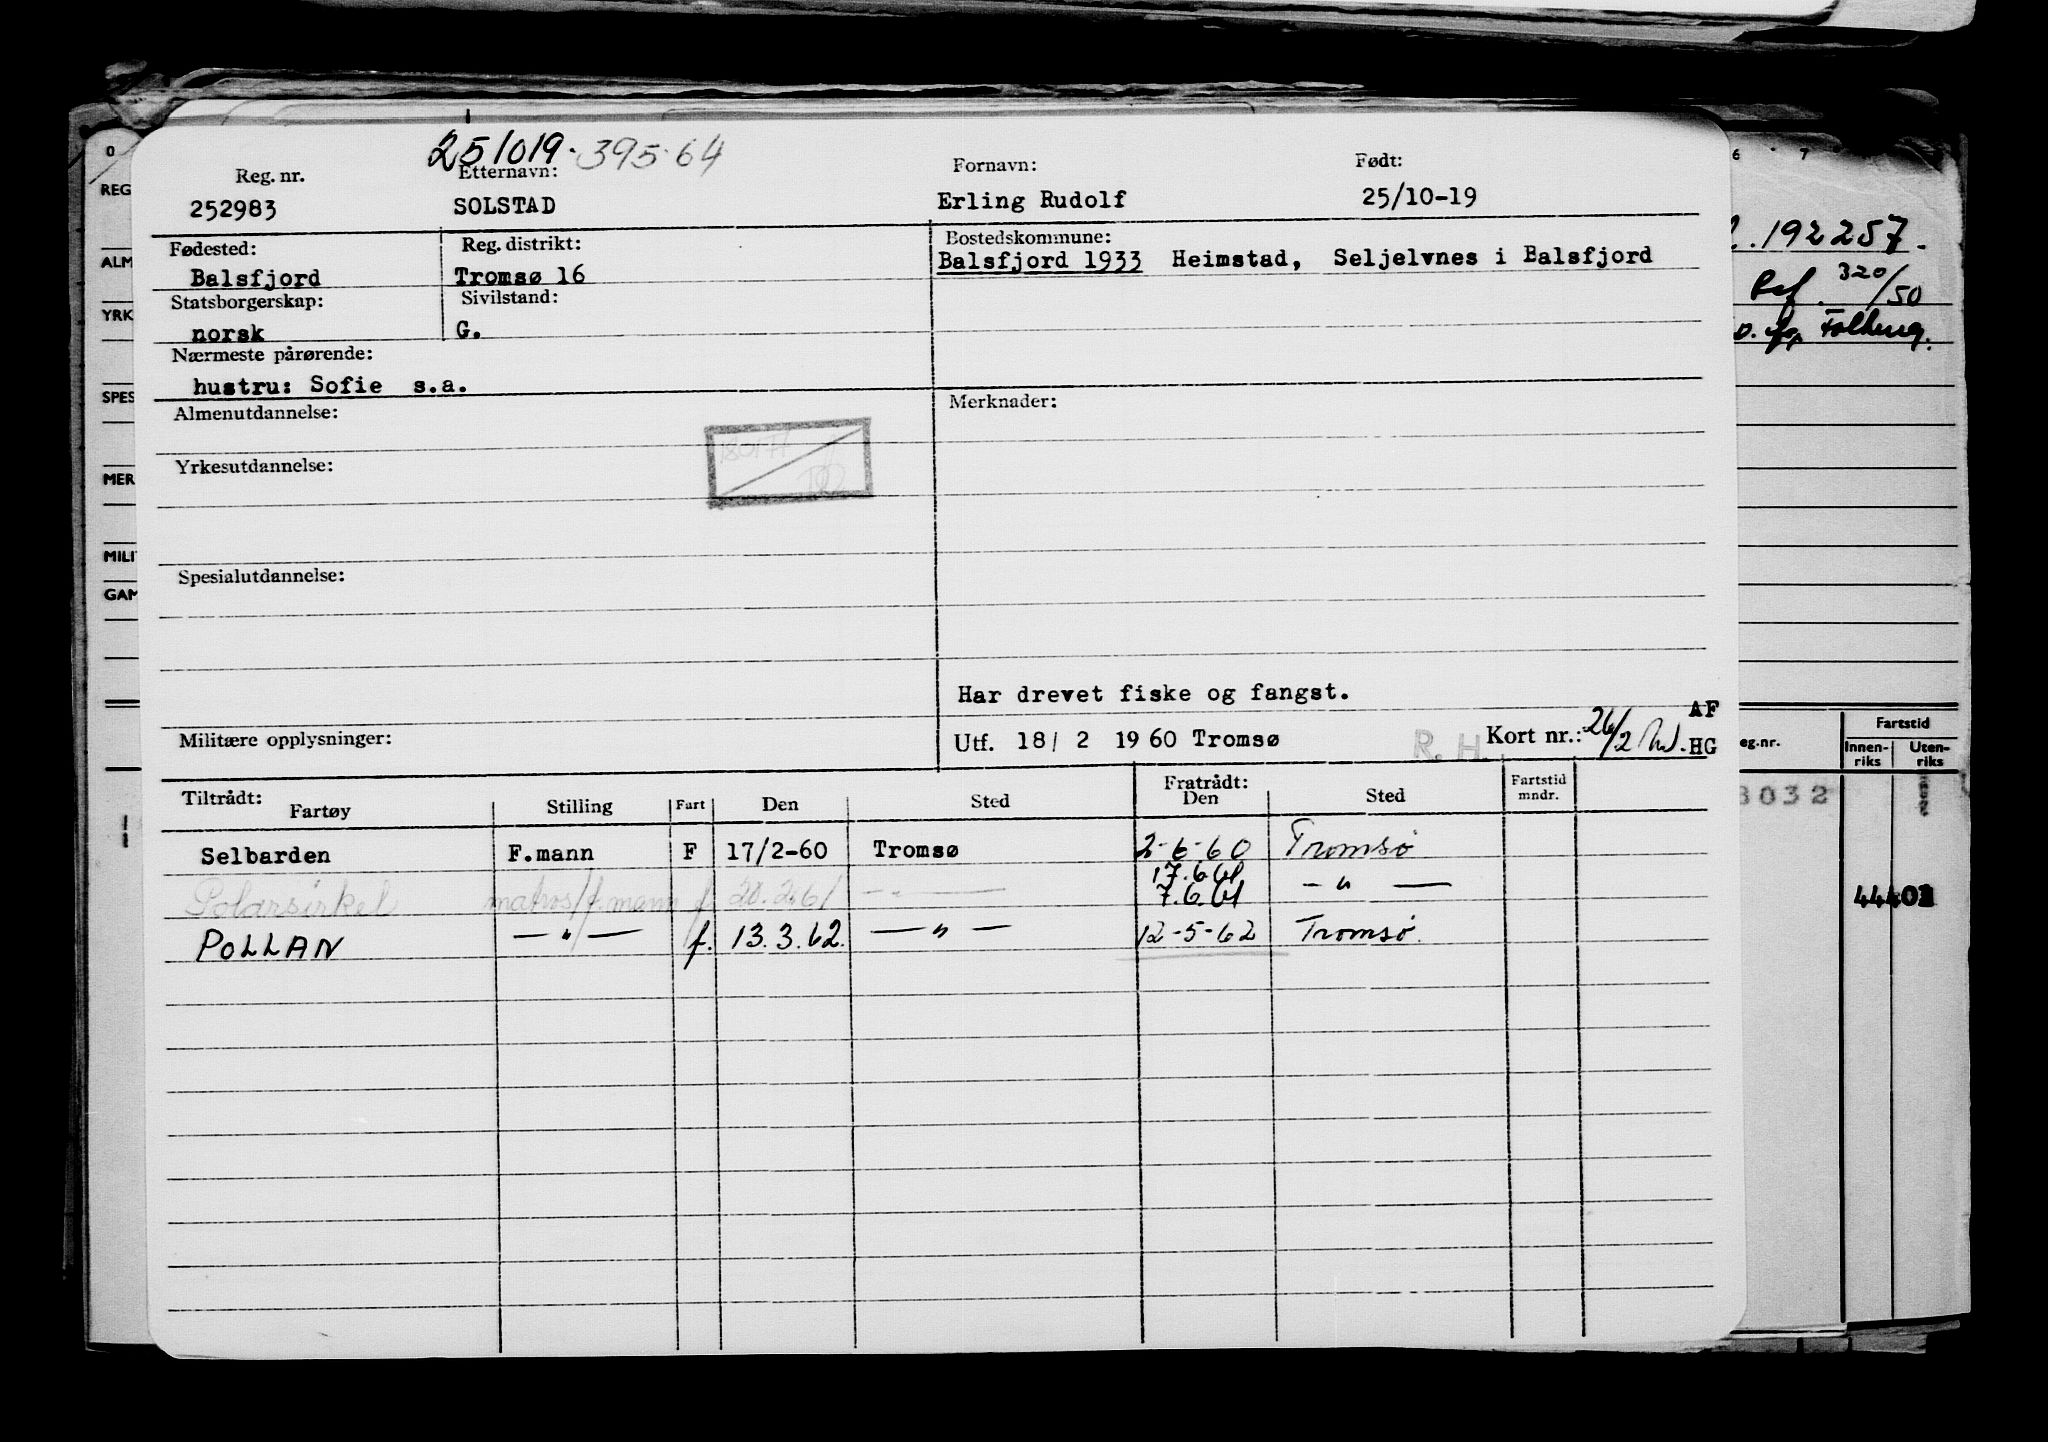 251019.39564
Reg. nr. Etternavn: Fornavn: Født:
252983 SOLSTAD Erling Rudolf 25/10-19
Fødested: Reg. distrikt: Bostedskommune:
Balsfjord Tromsø 16 Balsfjord 1933 Heimstad, Seljelvnes i Balsfjord
Statsborgerskap: Sivilstand:
norsk G.
Nærmeste pårørende:
hustru: Sofie s.a.
Almenutdannelse: Merknader:
Yrkesutdannelse:
Spesialutdannelse:
Har drevet fiske og fangst.
AF
Militære opplysninger: Utf. 18/ 2 19 60 Tromsø R. H. Kort nr.: 26/2 HG
Tiltrådt: Fratrådt: Fartstid
Fartøy Stilling Fart Den Sted Den Sted mndr.
Selbarden F.mann F 17/2-60 Tromsø 2-6-60 Tromsø
17.6.61
Polarsirkel matros/f.mann f 20.2.61 — " — 7.6.61 — " —
POLLAN — " — f. 13.3.62. — " — 12-5-62 Tromsø.
0
REG
ALM
YRK
SPES
MER
MILIT
GAM
6 7
192257.
Ref. 320/50
Fartstid
eg.nr. Innen- Uten-
riks riks
3032